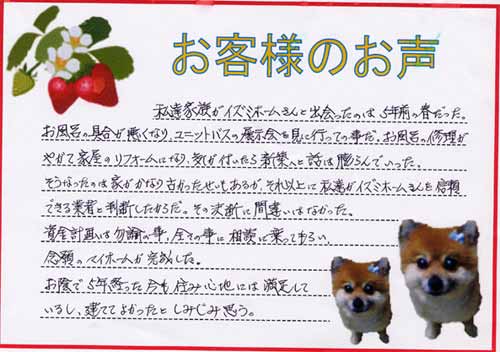 お客様のお声
私達家族がイズミホームさんと出会ったのは5年前の春だった。
お風呂の具合が悪くなり、ユニットバスの展示会を見に行っての事だ。お風呂の修理が
やがて家屋のリフォームになり、気が付いたら新築へと話は膨らんでいった。
そうなったのは家がかなり古かったせいもあるが、それ以上に私達がイズミホームさんを信頼
できる業者と判断したからだ。その決断に間違いはなかった。
資金計画は勿論の事、全ての事に相談に乗ってもらい、
念願のマイホームが完成した。
お陰で5年経った今も住み心地には満足して
いるし、建ててよかったとしみじみ思う。